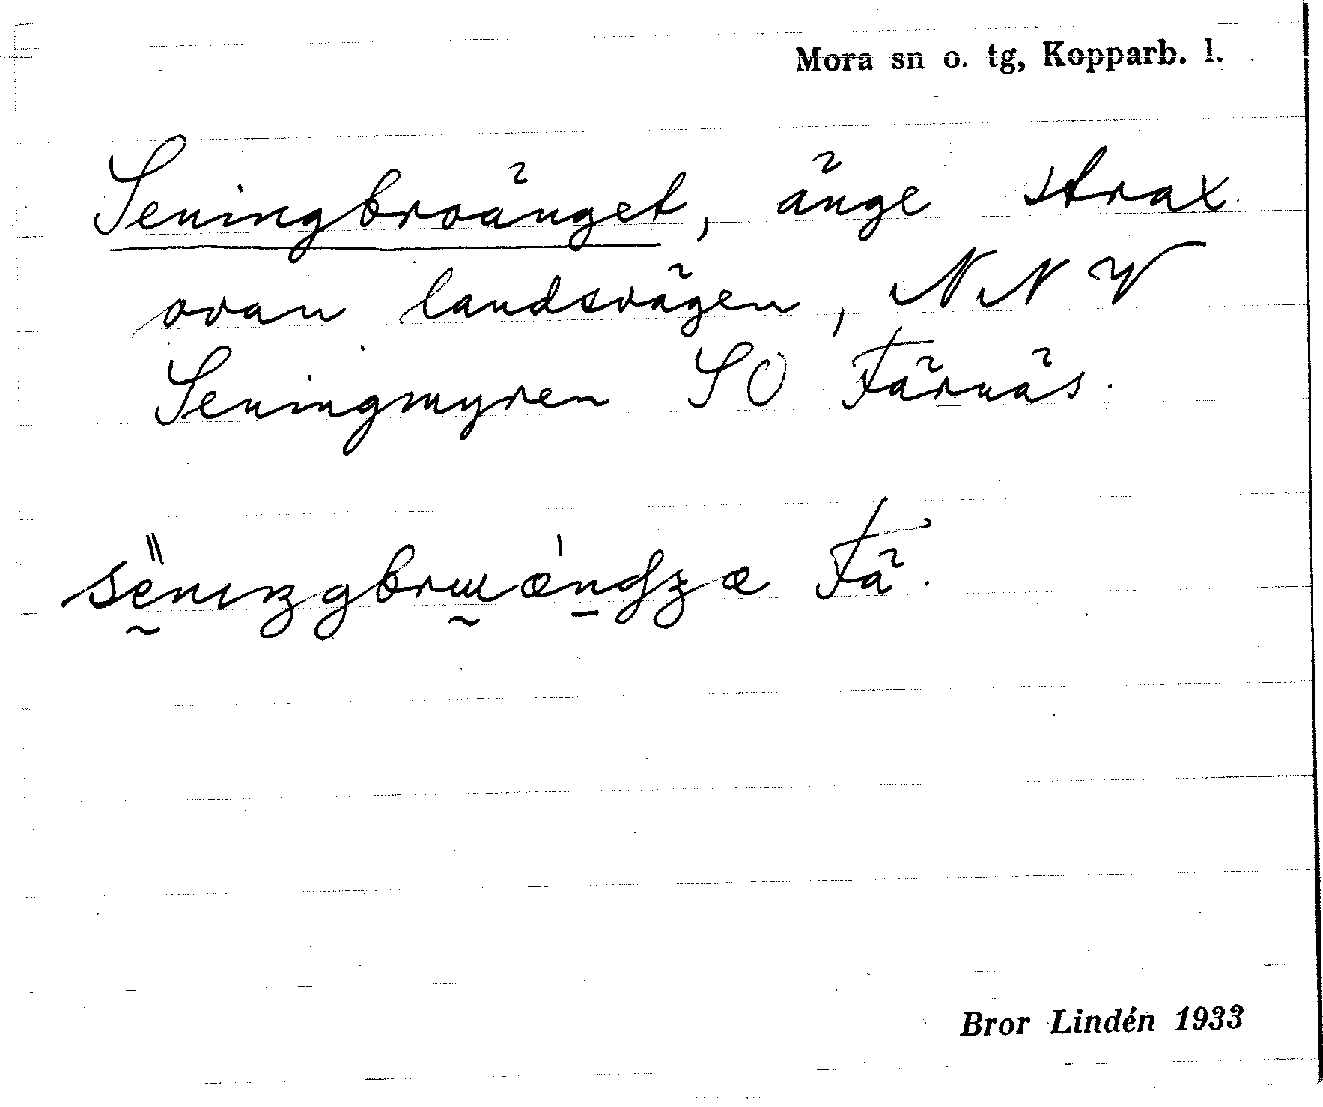 Mora sn o. tg, Kopparb. l.
Seningbroänget, änge strax
ovan landsvägen, NNV
Seningmyren SO Färnäs.
Fä.
Bror Lindén 1933